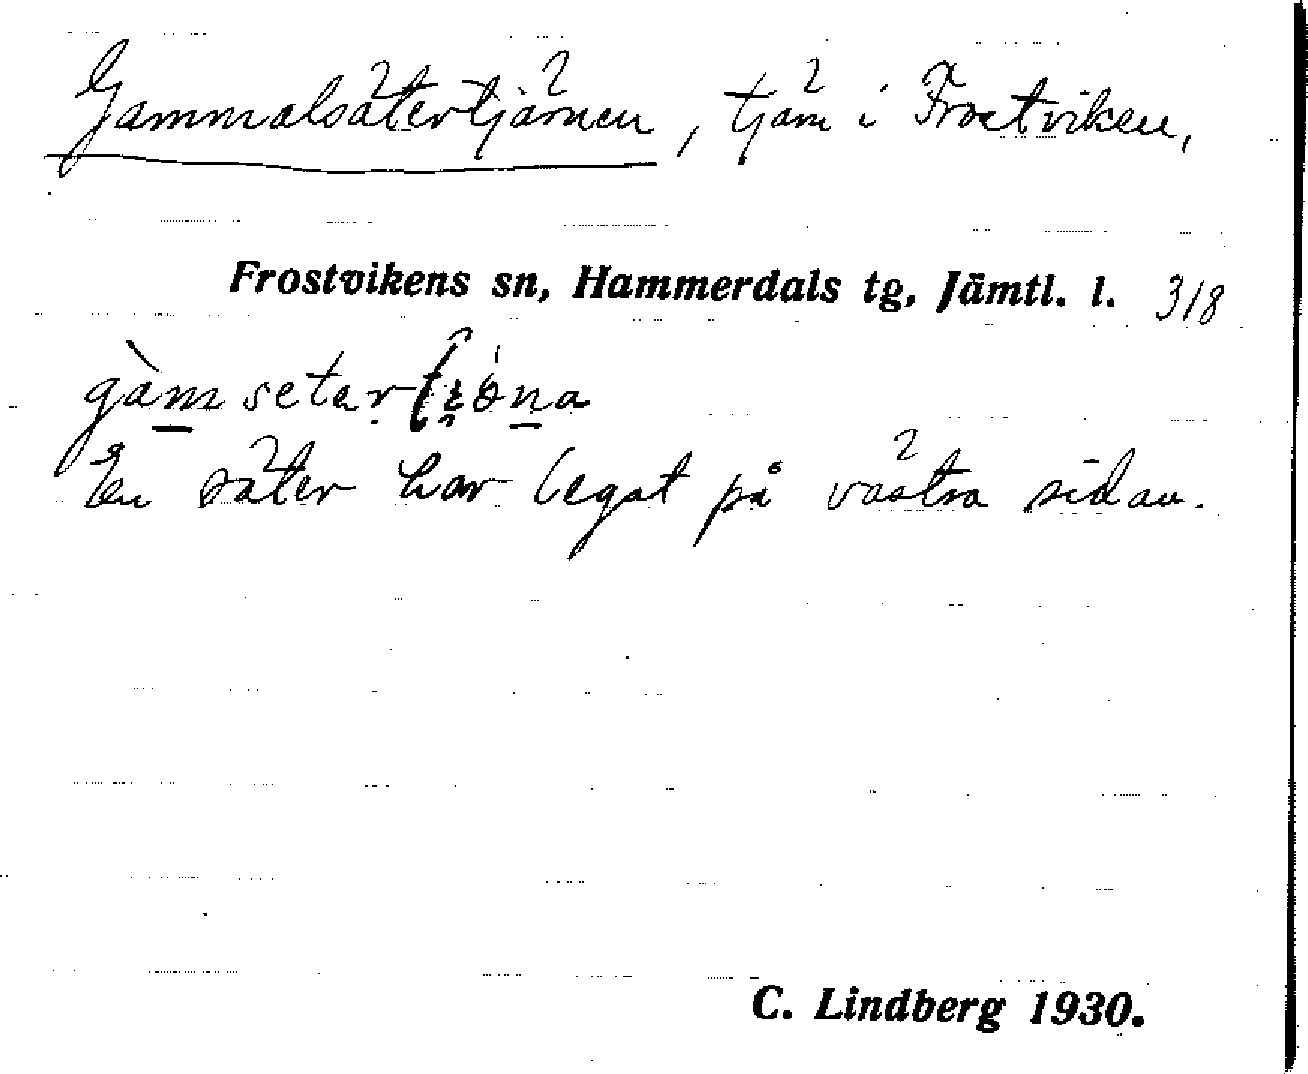 Gammalsätertjärnen, tjärn i Frostviken,
Frostvikens sn, Hammerdals tg, Jämtl. l. 318
En säter har legat på västra sidan.
C. Lindberg 1930.